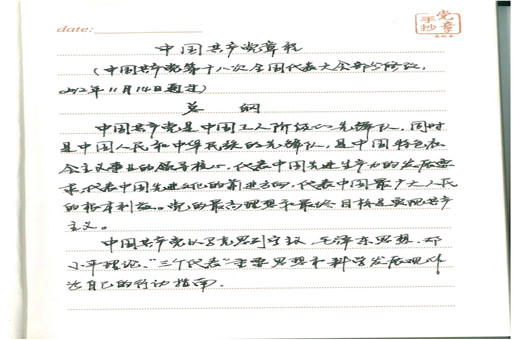 date:
党章
手抄
中国共产党章程
（中国共产党第十八次全国代表大会部分修改，
2012年11月14日通过）
总 纲
中国共产党是中国工人阶级的先锋队，同时
是中国人民和中华民族的先锋队，是中国特色社
会主义事业的领导核心，代表中国先进生产力的发展要
求，代表中国先进文化的前进方向，代表中国最广大人民
的根本利益。党的最高理想和最终目标是实现共产
主义。
中国共产党以马克思列宁主义、毛泽东思想、邓
小平理论、“三个代表”重要思想和科学发展观作
为自己的行动指南。